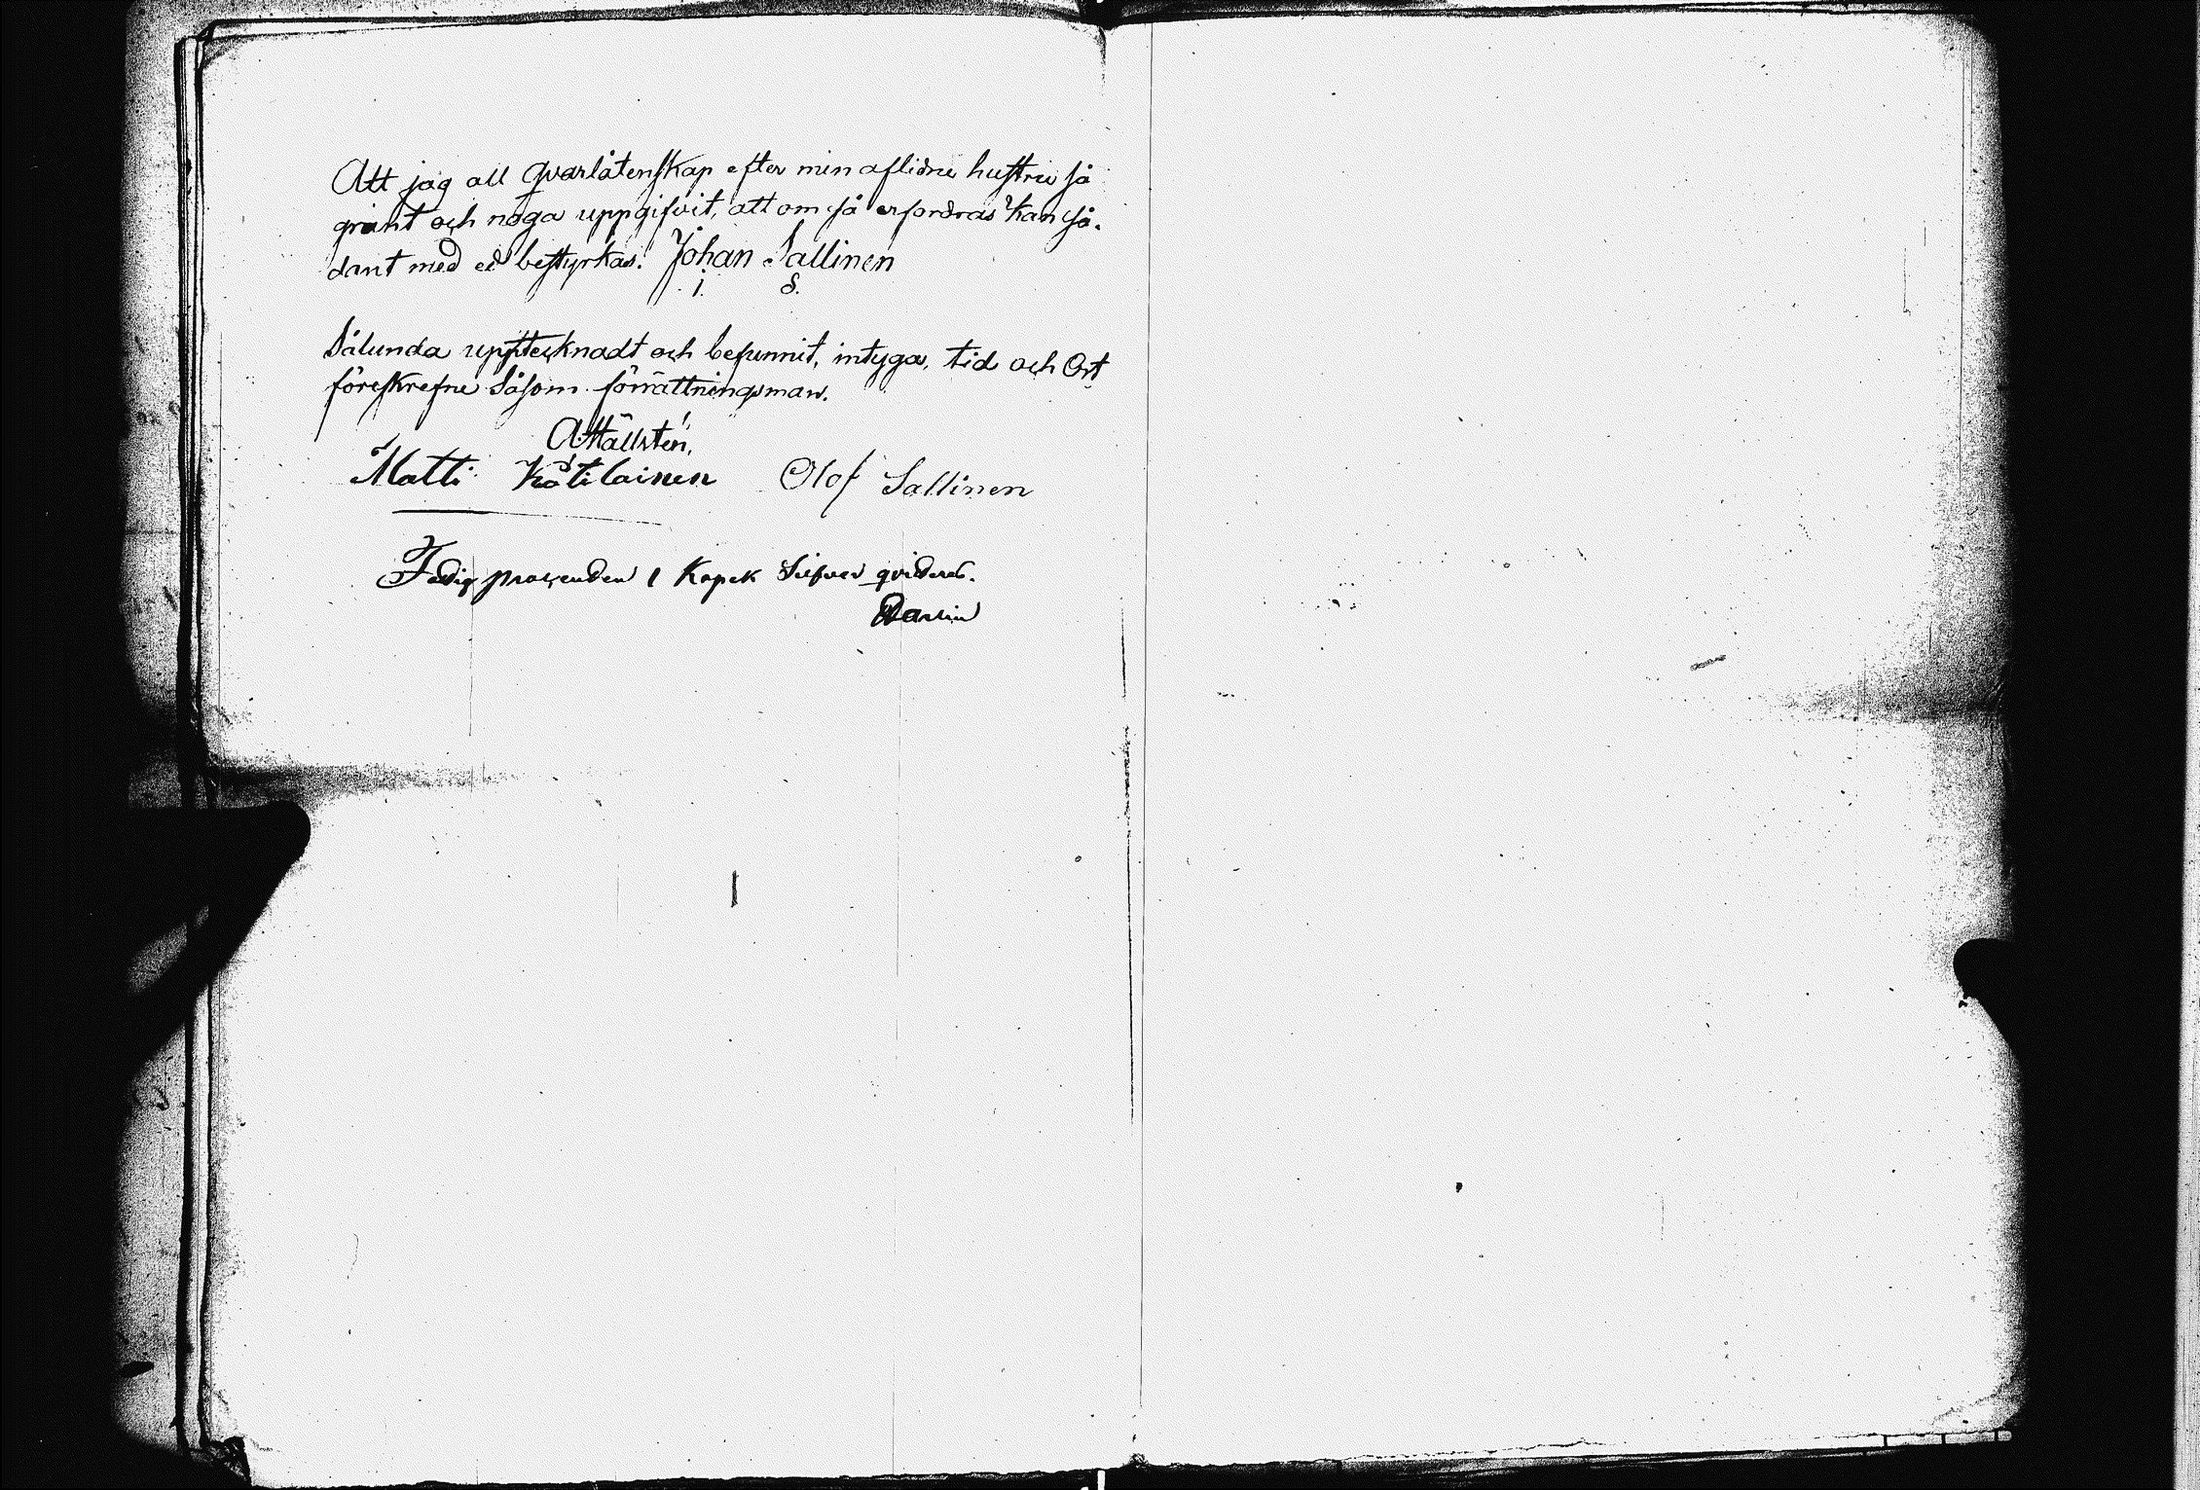 Att jag all qvarlåtenskap efter min aflidne hustru så
grant och noga uppgifvit, att om så erfordras kan så-
dant med ed bestyrkas. Johan Sallinen
I. S.
Sålunda upptecknadt och befunnit, intyga, tid och Ort
föreskrefne Såsom förrättningsman.
A Hällsten,
Matti Kåtilainen Olof Sallinen
Fattig procenden 1 Kopek Silfver qvitteras.